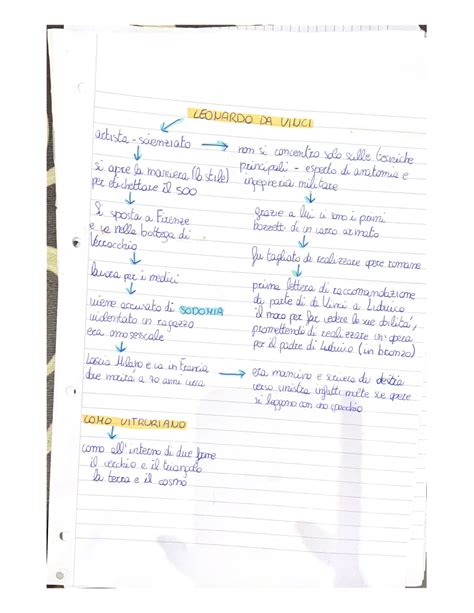 LEONARDO DA VINCI
artista - scienziato
si apre la maniera (lo stile)
per etichettare il 500
Si sposta a Firenze
e va nella bottega di
Verrocchio
lavora per i medici
viene accusato di SODOMIA
violentato un ragazzo
era omosessuale
lascia Milano e va in Francia
due morirà a 70 anni circa
non si concentra solo sulle tecniche
principali - esperto di anatomia e
ingegneria militare
grazie a lui ci sono i primi
bozzetti di un carro armato
fu tagliato di realizzare opere romane
prima lettera di raccomandazione
da parte di da Vinci a Ludovico
il moro per far vedere le sue abilità,
promettendo di realizzare un'opera
per il padre di Ludovico (in bronzo)
era mancino e scriveva da destra
verso sinistra infatti molte sue opere
si leggono con uno specchio
UOMO VITRUVIANO
uomo all'interno di due forme
il cerchio e il triangolo
la terra e il cosmo